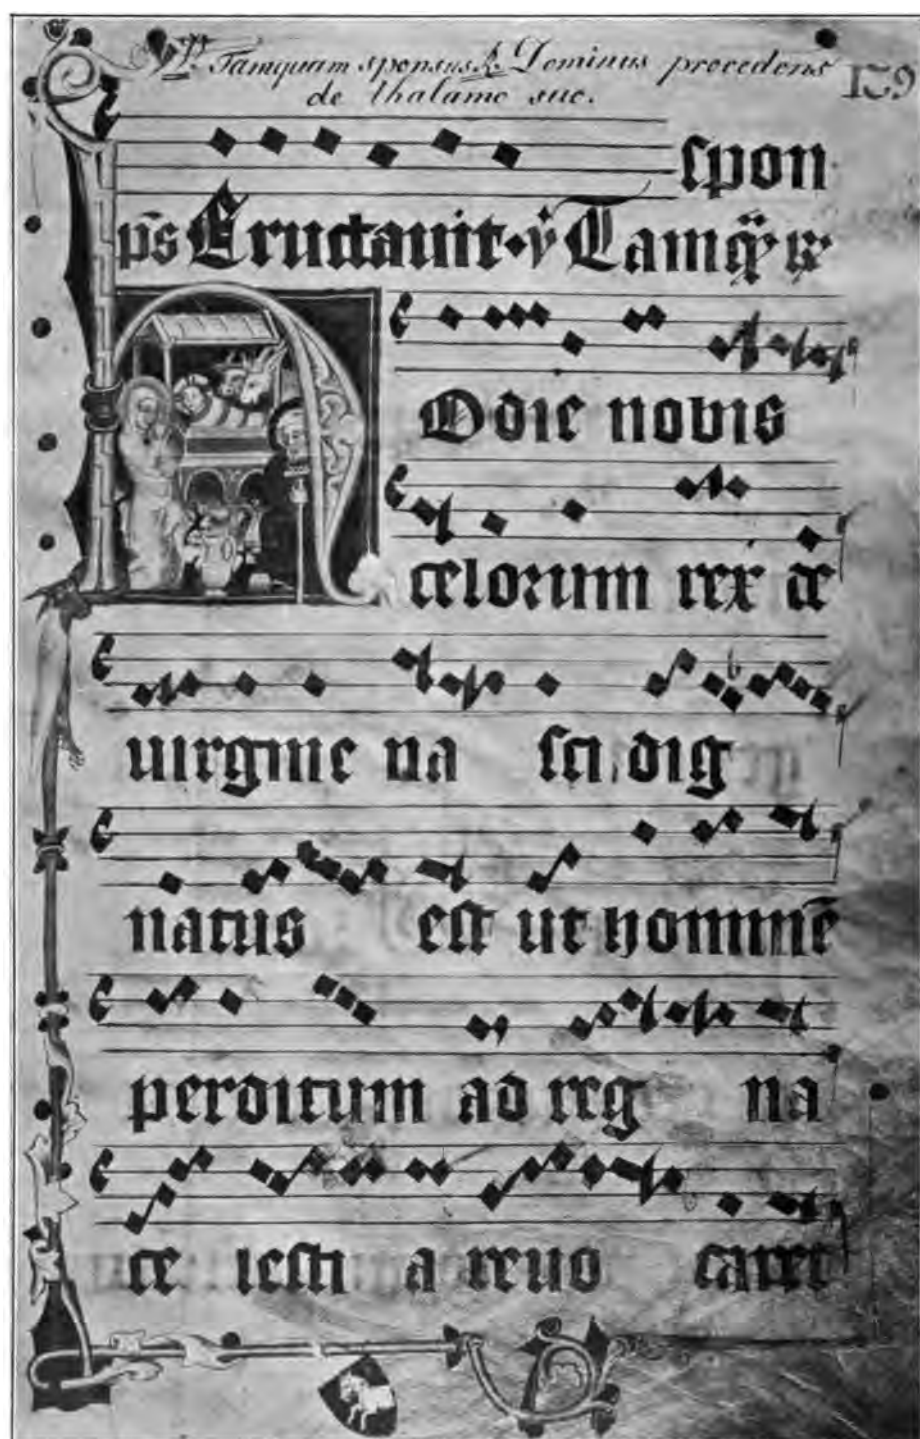 ℣. Tamquam sponsus ℟. Dominus procedens
de thalamo suo.
159
spon
ps Eructauit · v̇ Tamq̃
Odie nobis
celorum rex ce
uirgine na sci dig
natus est ut hominē
perditum ad reg na
ce lesti a reuo caret